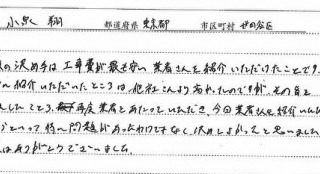 小泉 翔 都道府県 東京都 市区町村 世田谷区
の決め手は工事費が最も安い業者さんを紹介いただけたことです
紹介いただいたところは、他社さんより高かったのですが、その旨を
したところ、再度業者とあたっていただき、今回業者さんを紹介いただ
とって特に問題があったわけでもなく決めてよかったと思いました
はありがとうございました。